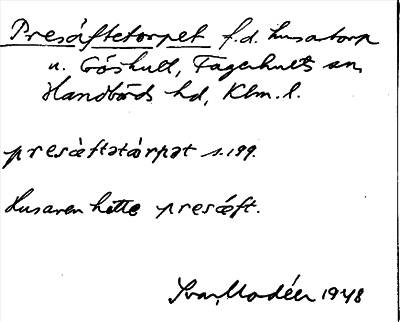 Presäftetorpet f.d. husartorp
u. Göshult, Fagerhults sn,
Handbörds hd, Klm. l.
presæftətàrpət s. 199.
Husaren hette presæft.
Ivar Modéer 1948